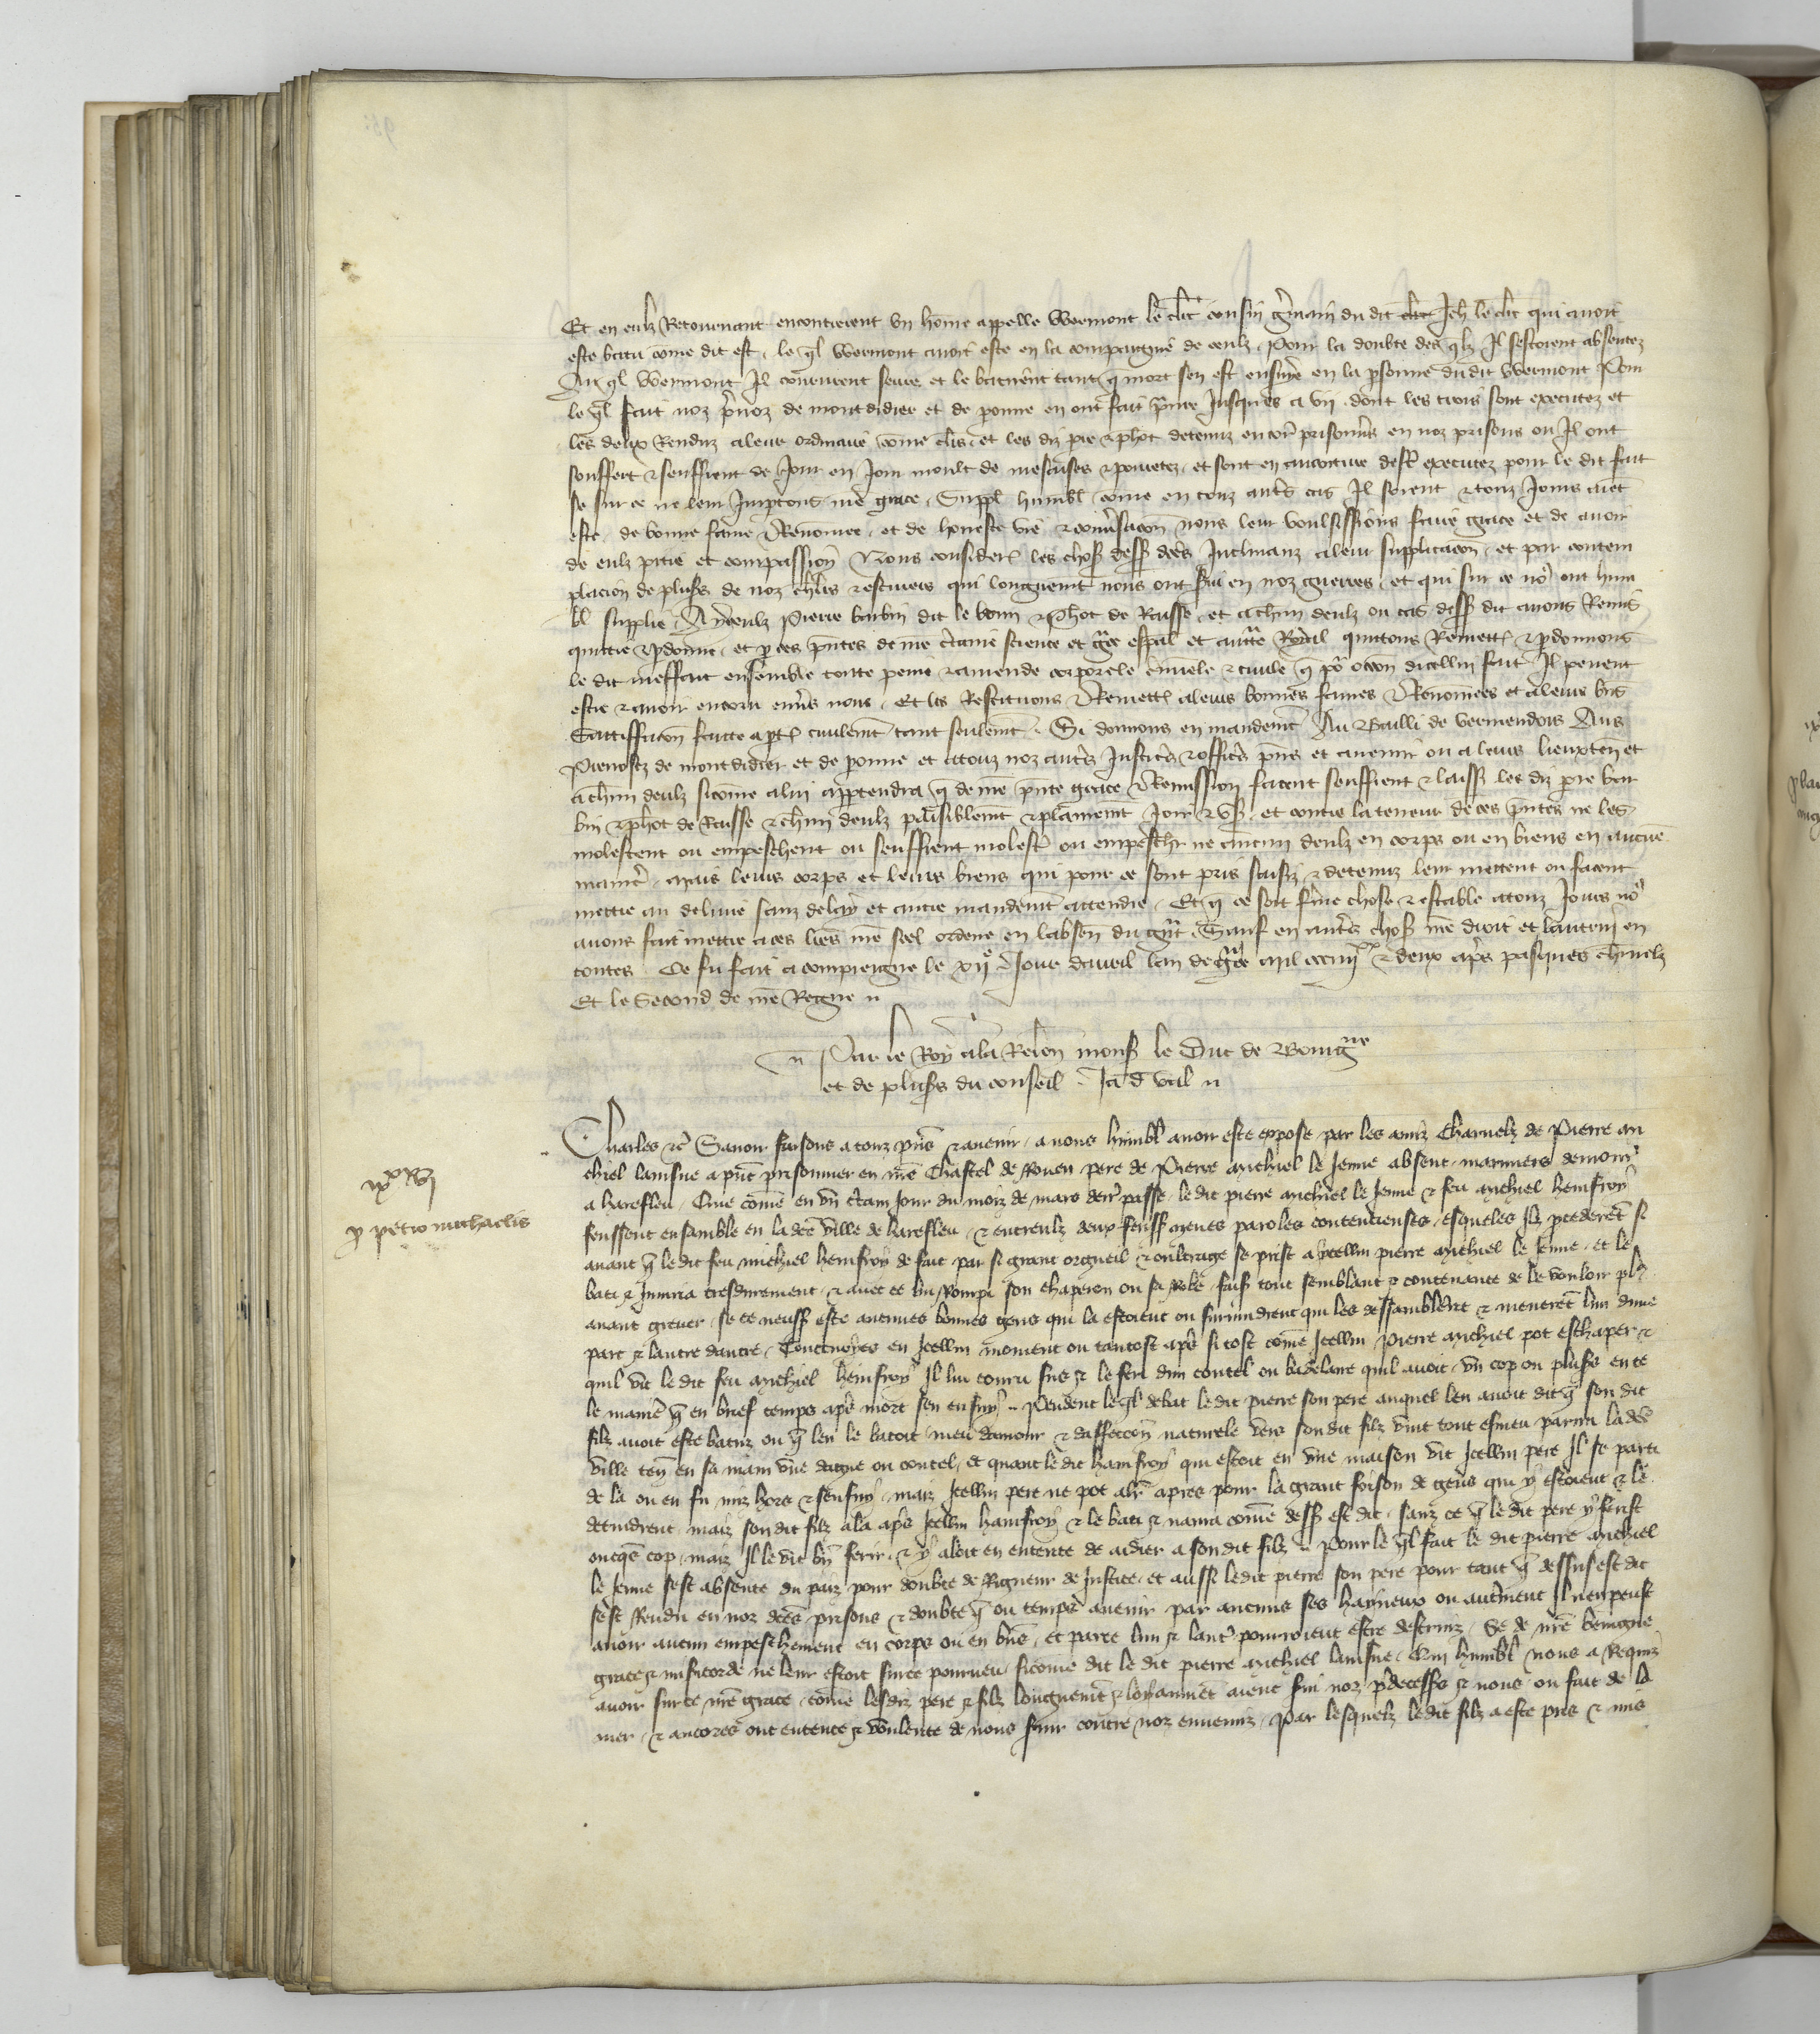 Et en eulz Retournant encontrerent vn hōme appelle Wermont le clt cousin gmain du dit Jeh le clt qui auoit
este batu cōme dit est. le ql Wermont auoit este en la compaignie de ceulz. Pour la doubte des qlz Il sestoient absentez
Au ql Wermont Il coururent seure et le batirent tant q mort sen est ensuiue en la psonne du dit Wermont Pour
le ql fait noz puoz de mondidier et de ponne en ont fait pnre Jusques a vij. dont les trois sont executez et
les deux Renduz a leur ordinaire cōme clers. et les diz pre & phot detenuz encor prisonns en noz prisons ou Il ont
souffert & seuffrent de Jour en Jour moult de mesaises & pouretez. et sont en auenture destre executez pour le dit fait
se sur ce ne leur Impartons nre grace. Suppl humbl cōme en touz autrs cas Il soient & touz Jours aient
este de bonne fame & Renomee. et de honeste vie & conusacion nous leur voulsissions faire grace et de auoir
de eulz pitie et compassion Nous considerz les choses dess dces Inclinanz a leur supplicacion. et par contem
placion de pluss de noz chlrs & escuiers qui longuemt nous ont serui en noz guerres. et qui sur ce nous ont hum
bl supplie. A yceulz Pierre barbin dit le & Phot de Rausse. et a chun deulz ou cas dess dit auons Remis
quittie & pdonne. et p ces pntes de nre ctaine science et gce espal et autte Royal quittons Remettz & pdonnons
le dit meffait ensemble toute peine & amende corporele cminele & ciuile q pour occon dicellui fait Il peuent
estre & auoir encoru enuers nous. Et les Restituons & Remettz a leurs bonnes fames & Renomees et a leurs bns
Sattiffacon faitte a ptie ciuilemt tant seulemt. Si donnons en mandemt Au Bailli de vermendois Aus
Preuostz de montdidier et de ponne et a touz noz autrs Justicrs & officrs pns et auenir ou a leurs lieuxten et
a chun deulz sicōme a lui apptendra q de nre pnte grace & Remission facent seuffrent & laisst les diz pre bar
bin & phot de Rausse & chun deulz paisiblemt & plainemt Joir & vser. et contre la teneur de ces pntes ne les
molestent ou empeschent ou seuffrent molester ou empeschr ne aucun deulz en corps ou en biens en aucune
manie. Mais leurs corps et leurs biens qui pour ce sont pris saisiz & detenuz leur mettent ou facent
mettre au deliure sanz delay et autre mandemt attendre. Et q ce soit ferme chose & estable a touz Jours nous
auons fait mettre a ces lres nre seel ordene en labsen du grt. Sauf en autrs choses nre droit et lautrui en
toutes Ce fu fait a compiengne le xije Jour dauril lan de gce Mil cccIIIIxx & deux aps pasques chnelz
Et le Second de nre Regne
Par le Roy a la Relon mons le Duc de Bourgne
et de pluss du conseil. Ja d val
Charles &c Sauoir faisons a touz pns & auenir. a nous humbl auoir este expose par les amiz Charnelz de Pierre mi
chiel lainsne a pnt prisonnier en nre Chastel de Rouen pere de Pierre michiel le Jenne absent. mariniers demour
a harefleu. Que cōme en vn ctain Jour du moiz de mars derr passe. le dit pierre michiel le Jenne & feu michiel hemfroy
feussent ensamble en la dce ville de harefleu. & entreulz deux feuss menes paroles contencieuses. esqueles Ilz pcederet si
auant q le dit feu michiel hemfroy de fait par si grant orgueil & oultrage se prist a ycellui pierre michiel le Jenne. et le
bati & Iniuria tresdurement. & auec ce lui Rompi son chaperon ou sa robe. fais tout semblant & contenance de le vouloir pl
auant greuer. se ce neuss este aucunes bonnes gens qui la estoient ou suruindrent qui les dessamblerent & menerent lun dune
part & lautre dautre. en Icellui moment ou tantost aps si tost cōme Icellui Pierre michiel pot eschaper &
quil vit le dit feu michiel hemfroy Il lui couru sus & le feri dun coutel ou badelare quil auoit. vn cop ou pluss en te
le manie q en brief temps aps mort sen ensuy. Pendent leql debat le dit pierre son pere auquel len auoit dit q son dit
filz auoit este batuz ou q len le batoit meu damour & daffeccion naturele vers sondit filz vint tout esmeu parmi la dce
ville ten en sa main vne dague ou coutel. et quant le dit hamfroy qui estoit en vne maison vit Icellui pere Il se parti
de la ou en fu miz hors & senfuy. maiz Icellui pere ne pot aler apres pour la grant foison de gens qui y estoient & le
detindrent. maiz son dit filz ala aps Icellui hamfroy & le bati & naura cōme dess est dit. sanz ce q le dit pere y ferist
oncqes cop. maiz Il le vit bn ferir. & y aloit en entente de aidier a son dit filz. Pour le ql fait le dit pierre michiel
le Jenne sest absente du paiz pour doubte de Rigueur de Justice. et aussi le dit pierre son pere pour tant q dessus est dit
sest Rendu en noz dces prisons & doubte q ou temps auenir par aucuns ses hayneux ou autrement Il nen peust
auoir aucun empeschement en corps ou en bns. et parce lun & lautr pourroient estre destruiz. Se de nre benigne
grace & misicorde ne leur estoit surce pourueu. sicōme dit le dit pierre michiel lainsne. Qui humbl nous a Requiz
auoir surce nre grace. cōme lesdiz pere & filz longuemt & loyaumet aient serui noz pdecesss & nous ou fait de la
mer. & ancores ont entente & voulente de nous seruir contre noz ennemiz. Par lesquelz le dit filz a este pris & mis
p petro michaelis